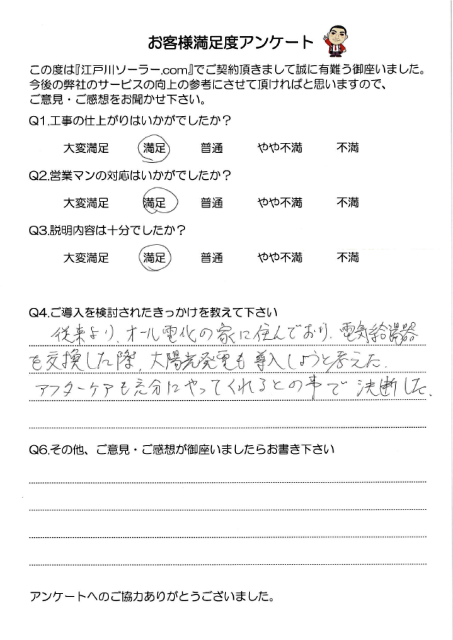 お客様満足度アンケート
この度は『江戸川ソーラー.com』でご契約頂きまして誠に有難う御座いました。
今後の弊社のサービスの向上の参考にさせて頂ければと思いますので、
ご意見・ご感想をお聞かせ下さい。
Q1.工事の仕上がりはいかがでしたか？
大変満足 満足 普通 やや不満 不満
Q2.営業マンの対応はいかがでしたか？
大変満足 満足 普通 やや不満 不満
Q3.説明内容は十分でしたか？
大変満足 満足 普通 やや不満 不満
Q4.ご導入を検討されたきっかけを教えて下さい
従来より、オール電化の家に住んでおり、電気給湯器
を交換した際、太陽光発電も導入しようと考えた。
アフターケアも充分にやってくれるとの事で決断した。
Q6.その他、ご意見・ご感想が御座いましたらお書き下さい
アンケートへのご協力ありがとうございました。